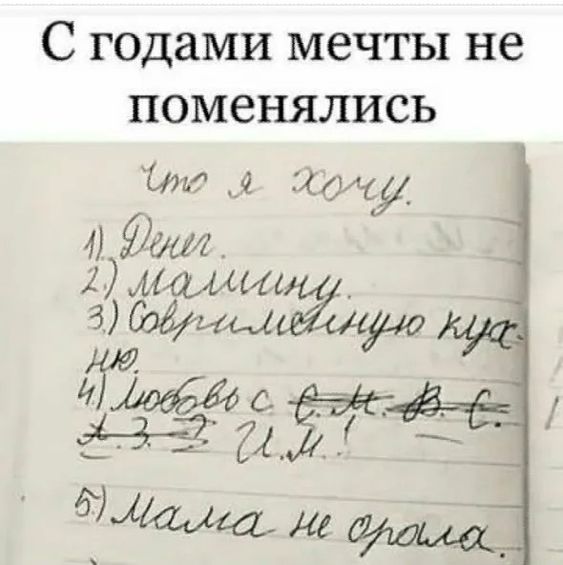 С годами мечты не
поменялись
Что я хочу.
1) Денег.
2) Машину.
3) Соврименную кух-
ню.
4) Любовь с С. М. В. С.
А. З. И.М.!
5) Мама не орала.